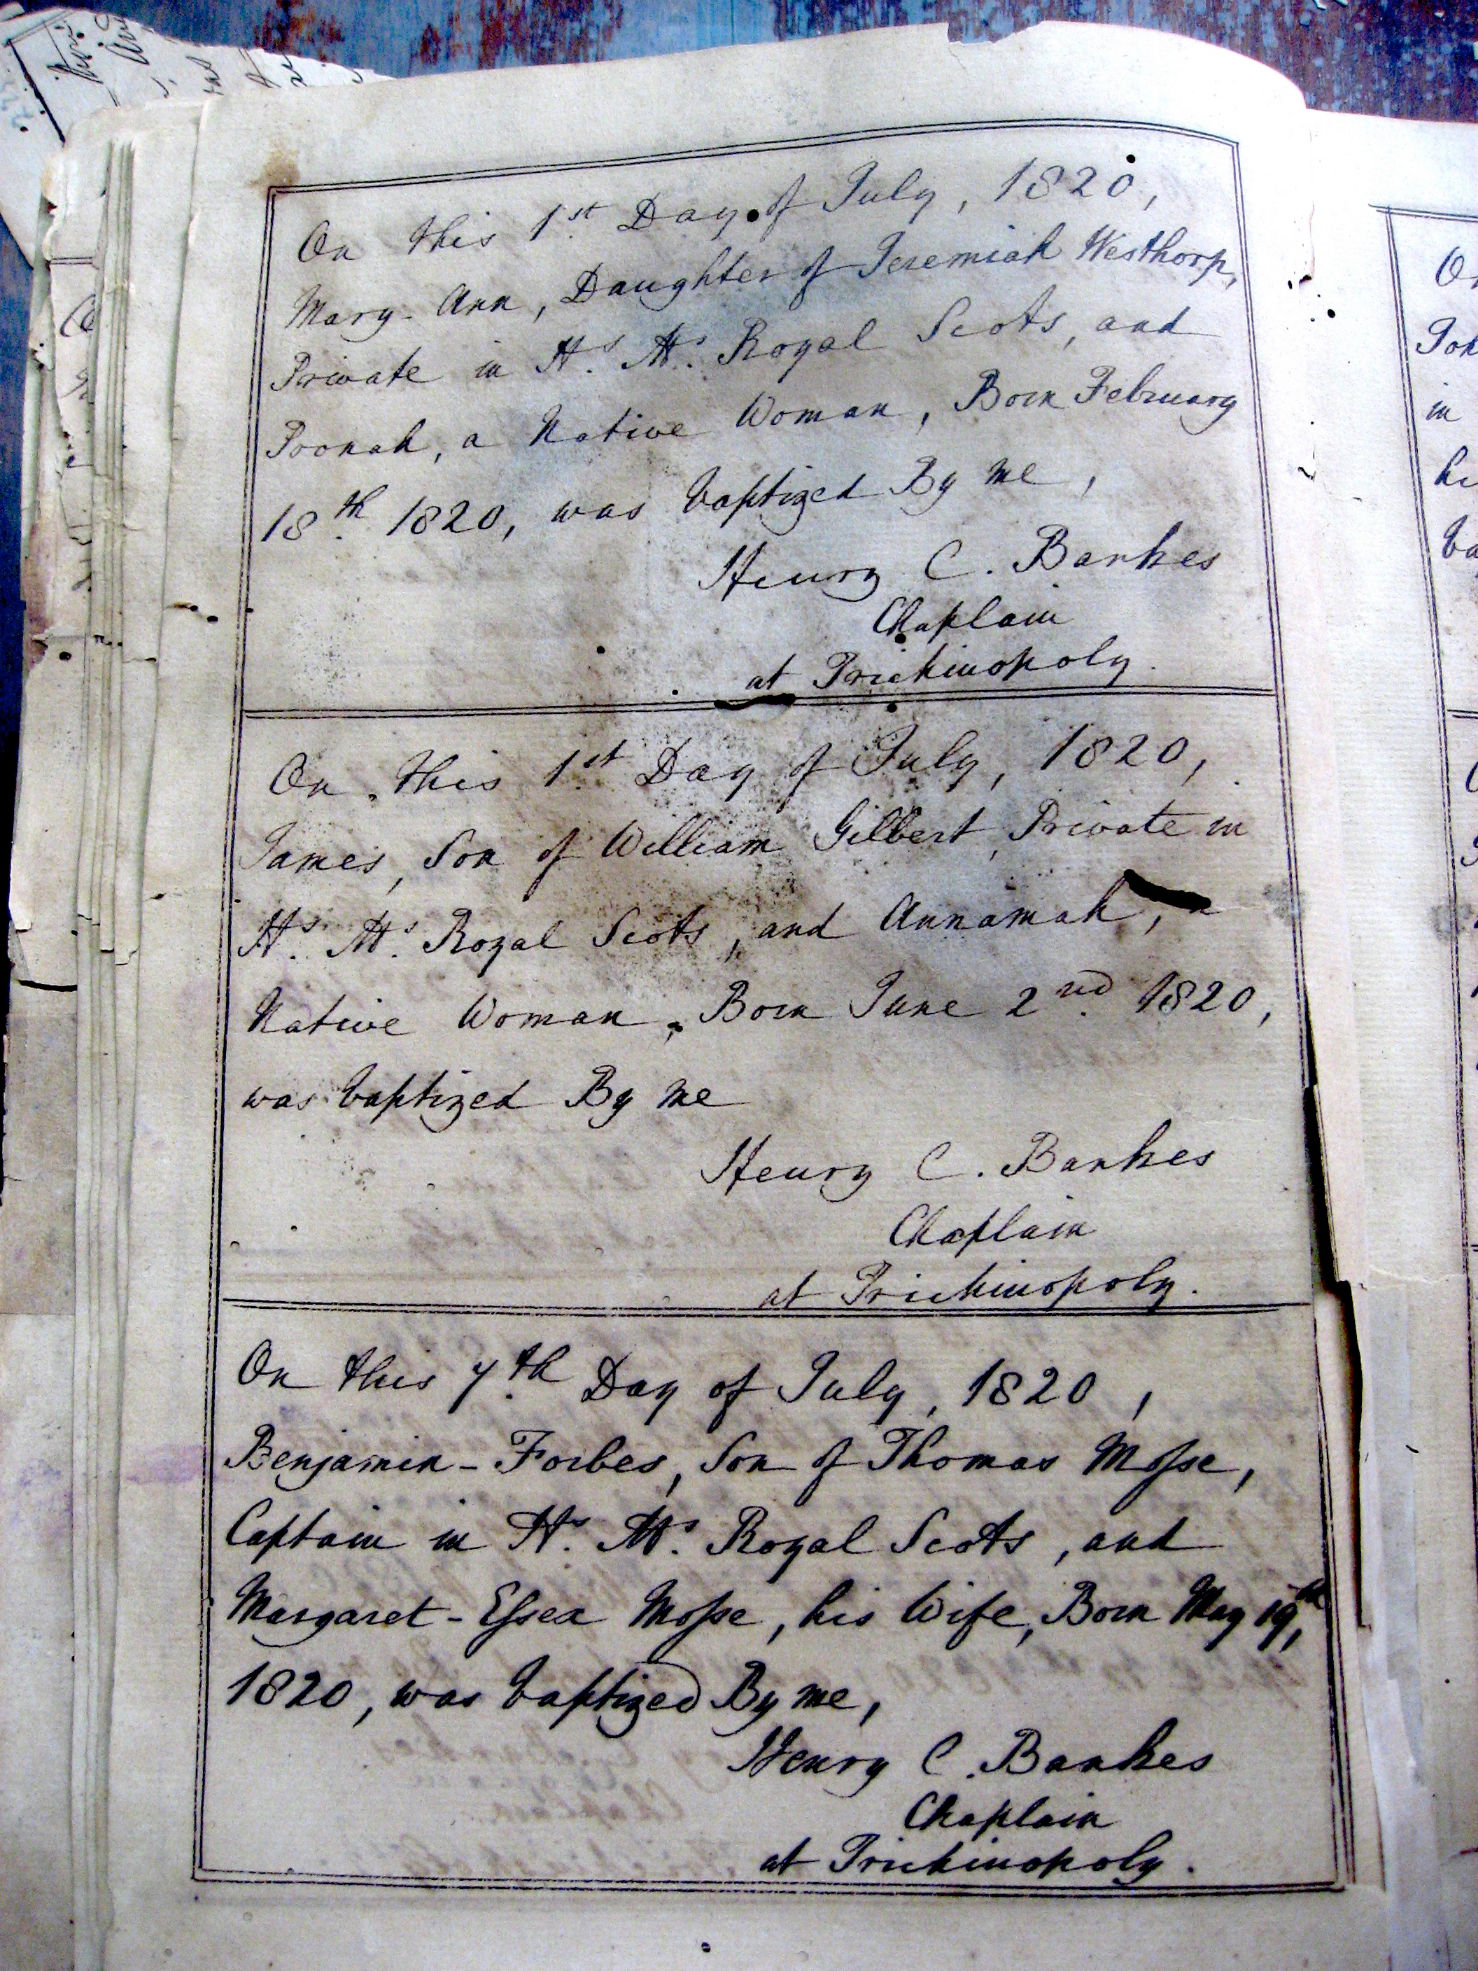 On this 1st Day of July, 1820,
Mary-Ann, Daughter of Jeremiah Westhorp,
Private in H.s M.s Royal Scots, and
Poonah, a Native Woman, Born February
18th 1820, was baptized By me,
Henry C. Bankes
Chaplain
at Trichinopoly.
On this 1st Day of July, 1820,
James, Son of William Gilbert, Private in
H.s M.s Royal Scots, and Annamah, a
Native Woman, Born June 2nd 1820,
was baptized By me
Henry C. Bankes
Chaplain
at Trichinopoly.
On this 7th Day of July, 1820,
Benjamin-Forbes, Son of Thomas Moſse,
Captain in H.s M.s Royal Scots, and
Margaret-Eſsex Moſse, his Wife, Born May 19th,
1820, was baptized By me,
Henry C. Bankes
Chaplain
at Trichinopoly.